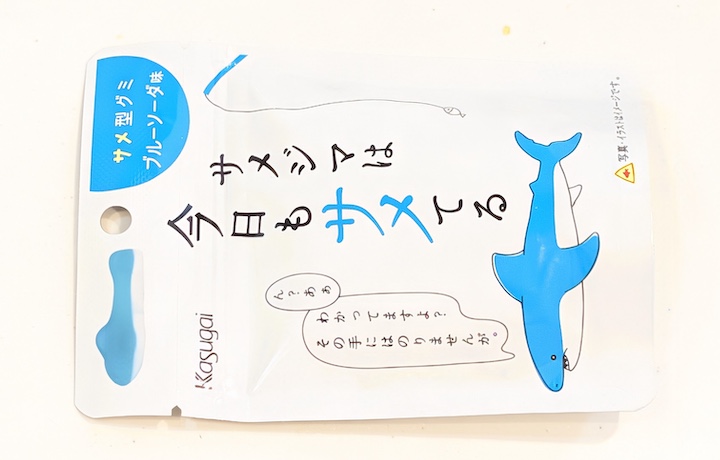 サメ型グミ
ブルーソーダ味
サメジマは
今日もサメてる
ん？あぁ
わかってますよ？
その手にはのりませんが。
Kasugai
写真・イラストはイメージです。